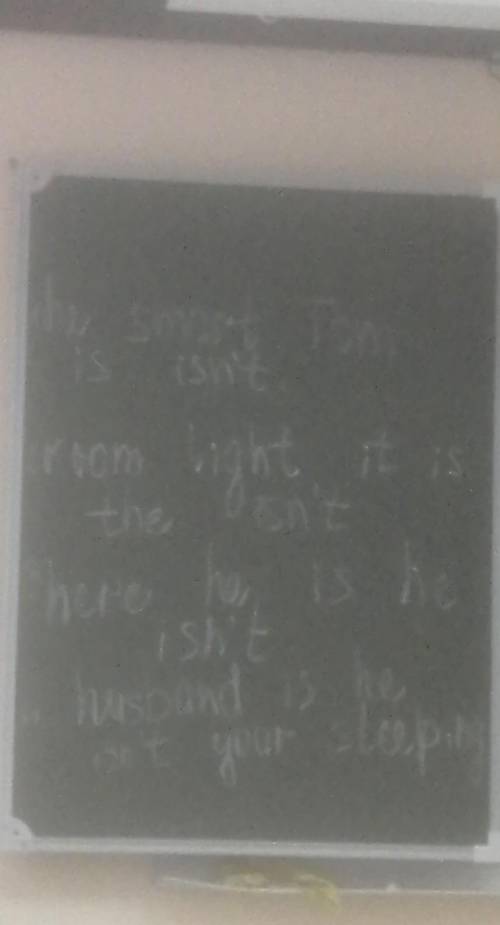 smart Tom
is isn't
room light it is
the isn't
here he is he
isn't
husband is he
isn't your sleeping